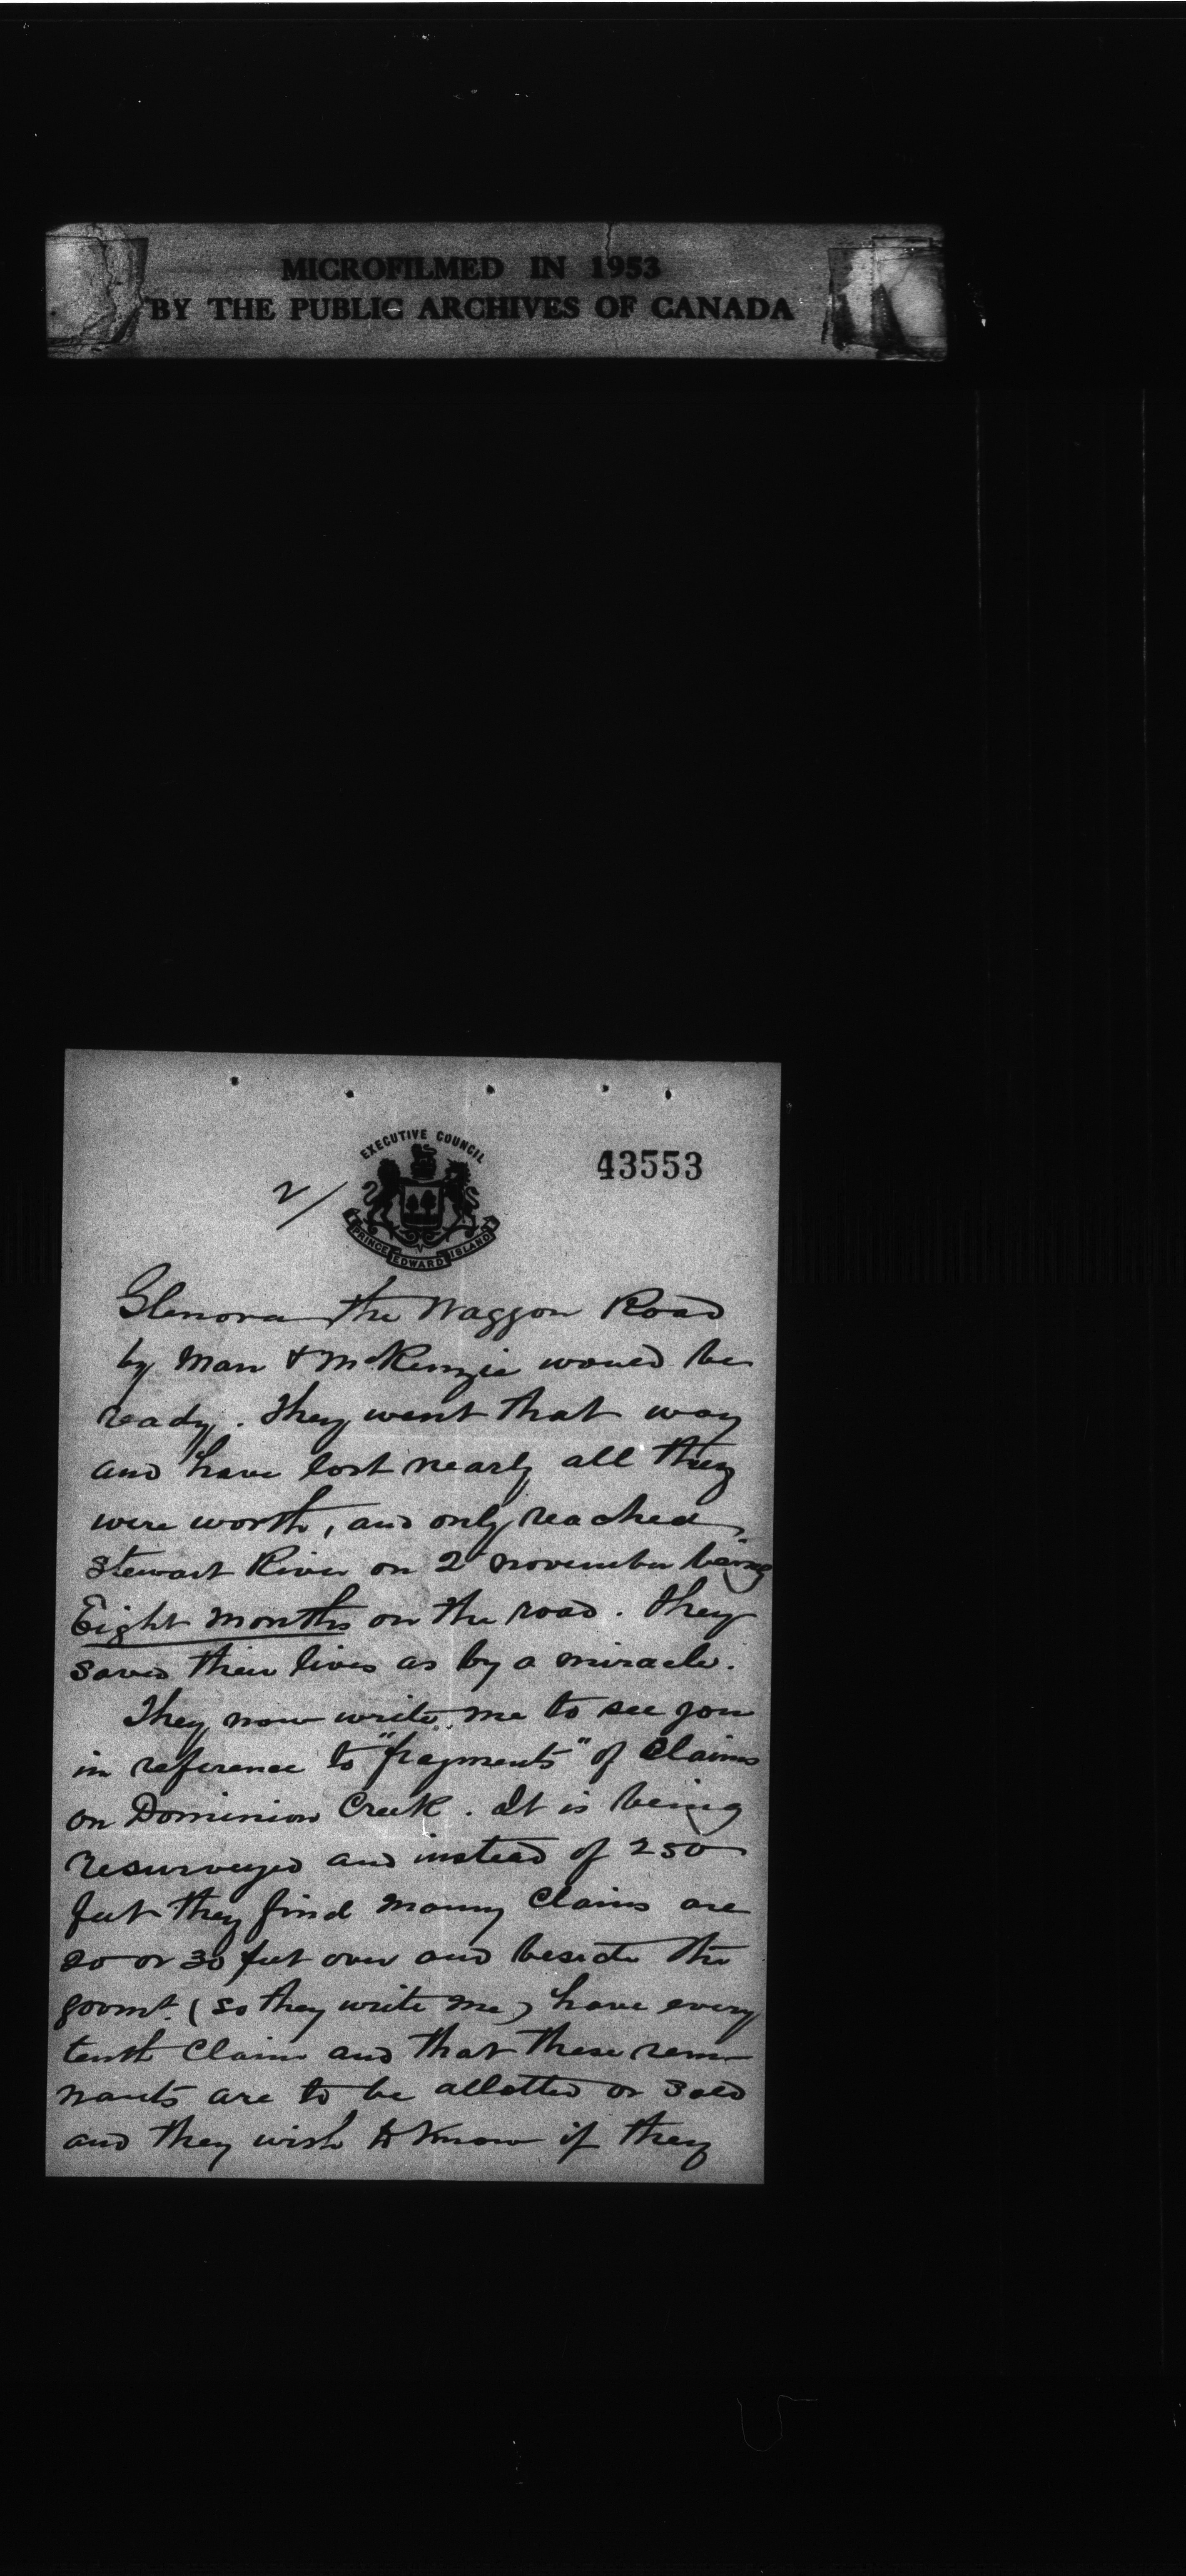 MICROFILMED IN 1953
BY THE PUBLIC ARCHIVES OF CANADA
EXECUTIVE COUNCIL
2/
43553
PRINCE EDWARD ISLAND
Glenora the Waggon Road
by Mann & McKenzie would be
ready. They went that way
and have lost nearly all they
were worth, and only reached
Stewart River on 2d november being
Eight months on the road. They
saved their lives as by a miracle.
They now write me to see you
in reference to "fragments" of Claims
on Dominion Creek. It is being
resurveyed and instead of 250
feet they find many Claims are
20 or 30 feet over and beside the
govmt. (so they write me) have every
tenth Claim and that these rem-
nants are to be allotted or sold
and they wish to know if they